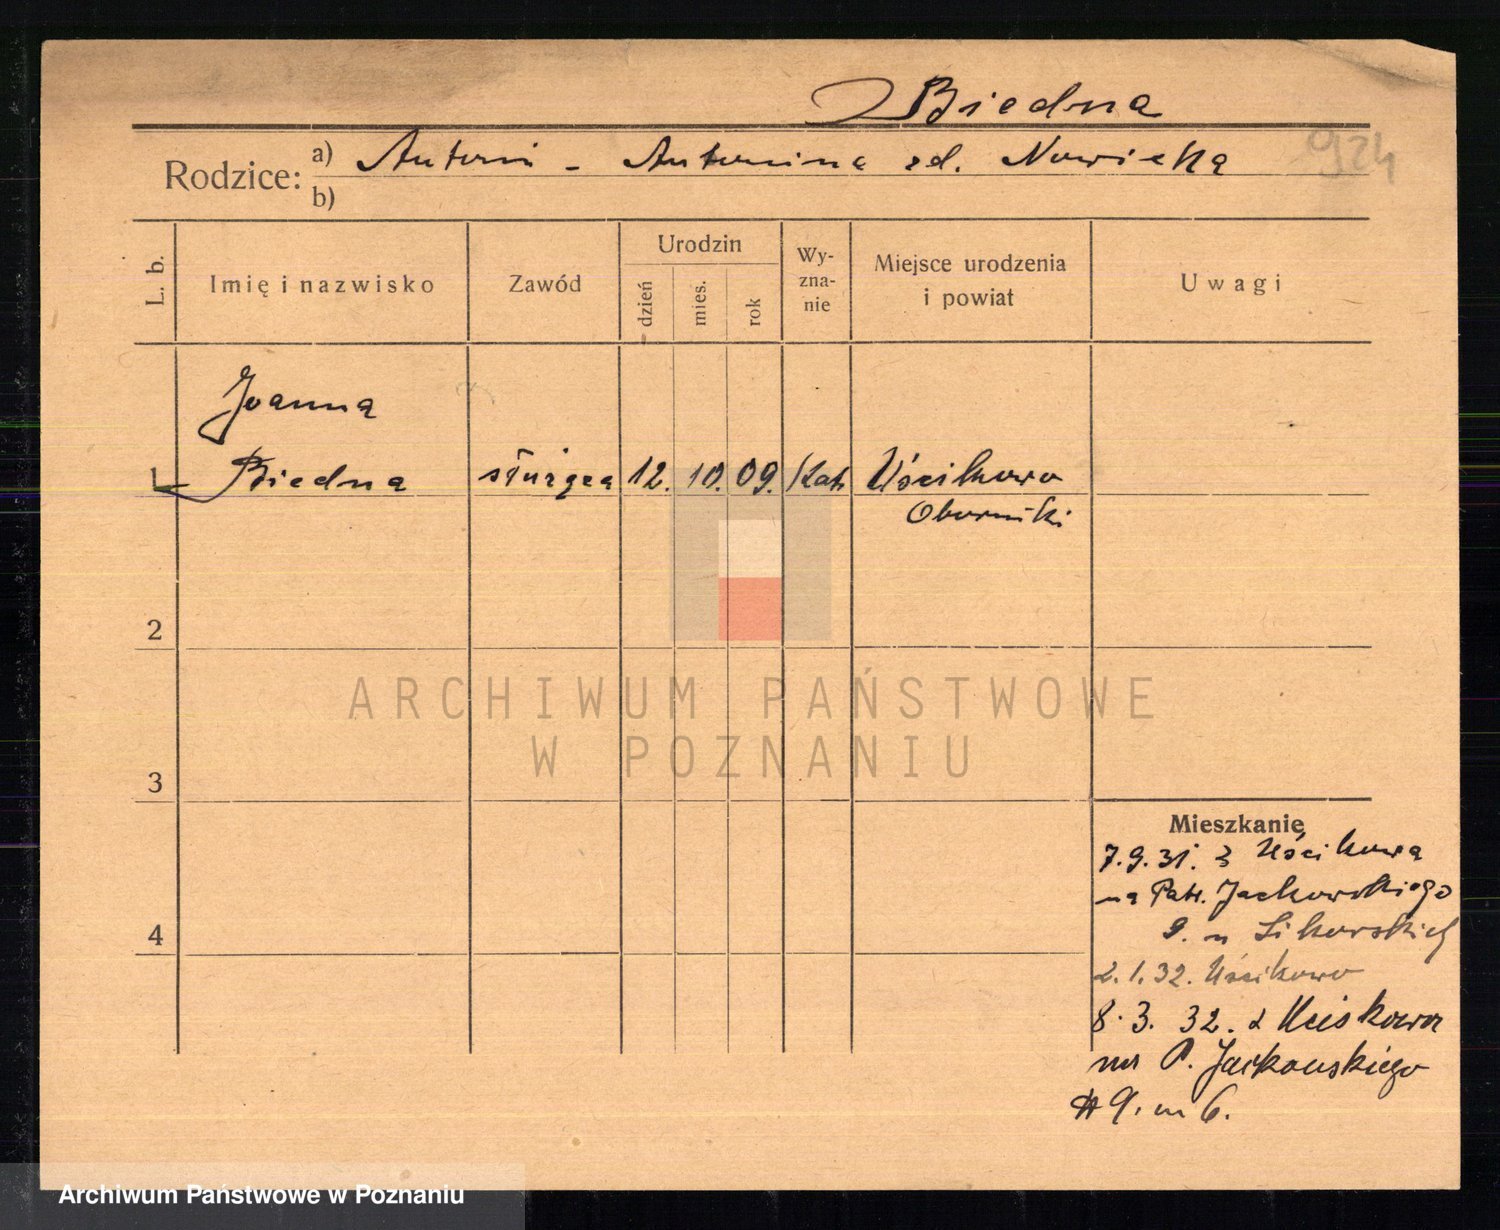 Biedna
924
Rodzice: a) Antoni - Antonina zd. Nowicka
b)
L. b.
Imię i nazwisko
Zawód
Urodzin
dzień
mies.
rok
Wy-
zna-
nie
Miejsce urodzenia
i powiat
Uwagi
Joanna
1 Biedna służąca 12. 10. 09. Kat. Uścikowo
Oborniki
2
3
4
Mieszkanie
7.9.31. z Uścikowa
na Patr. Jackowskiego
9. u Sikorskich
2.1.32. Uścikowo
8.3.32. z Uciskowa
na P. Jackowskiego
9. m 6.
ARCHIWUM PAŃSTWOWE
W POZNANIU
Archiwum Państwowe w Poznaniu